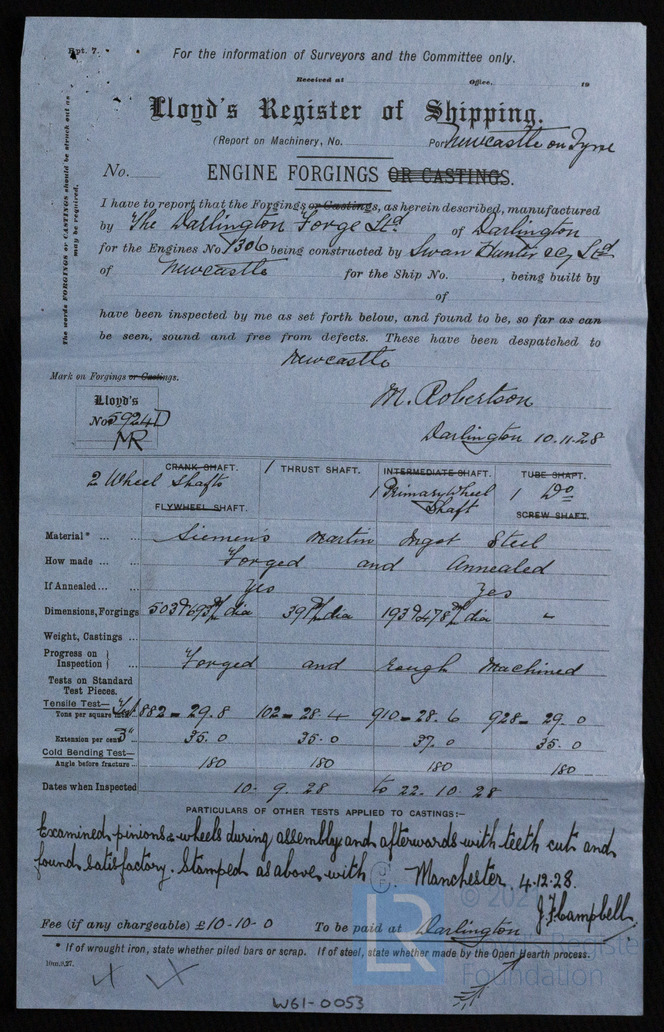 Rpt. 7.
For the information of Surveyors and the Committee only.
Received at Office, 19
Lloyd's Register of Shipping.
(Report on Machinery, No. Port Newcastle on Tyne
No. ENGINE FORGINGS OR CASTINGS.
The words FORGINGS or CASTINGS should be struck out as may be required.
I have to report that the Forgings or Castings, as herein described, manufactured
by The Darlington Forge Ltd of Darlington
for the Engines No 1306 being constructed by Swan Hunter & Ltd
of Newcastle for the Ship No. , being built by
of
have been inspected by me as set forth below, and found to be, so far as can
be seen, sound and free from defects. These have been despatched to
Newcastle
Mark on Forgings or Castings.
M. Robertson
Lloyd's
No 5924 D
MR
Darlington 10.11.28
CRANK SHAFT. 1 THRUST SHAFT. INTERMEDIATE SHAFT. TUBE SHAFT.
2 Wheel Shafts 1 Primary Wheel Shaft 1 Do
FLYWHEEL SHAFT. SCREW SHAFT.
Material* ... Siemens Martin Ingot Steel
How made ... Forged and Annealed
If Annealed... Yes Yes
Dimensions, Forgings dia dia dia "
Weight, Castings ...
Progress on Inspection } ... Forged and Rough Machined
Tests on Standard
Test Pieces.
Tensile Test—
Tons per square inch 882 = 29.8 102 = 28.4 910 = 28.6 928 = 29.0
Extension per cent 3" 35.0 35.0 37.0 35.0
Cold Bending Test—
Angle before fracture... 180 180 180 180
Dates when Inspected 10. 9. 28 to 22. 10. 28
PARTICULARS OF OTHER TESTS APPLIED TO CASTINGS:-
Examined pinions & wheels during assembly and afterwards with teeth cut and
found satisfactory. Stamped as above, with Manchester. 4.12.28.
J.F. Campbell
Fee (if any chargeable) £10-10-0 To be paid at Darlington
* If of wrought iron, state whether piled bars or scrap. If of steel, state whether made by the Open Hearth process.
10m.9.27.
LR
© 202
Lloyd's Register
Foundation
W61-0053